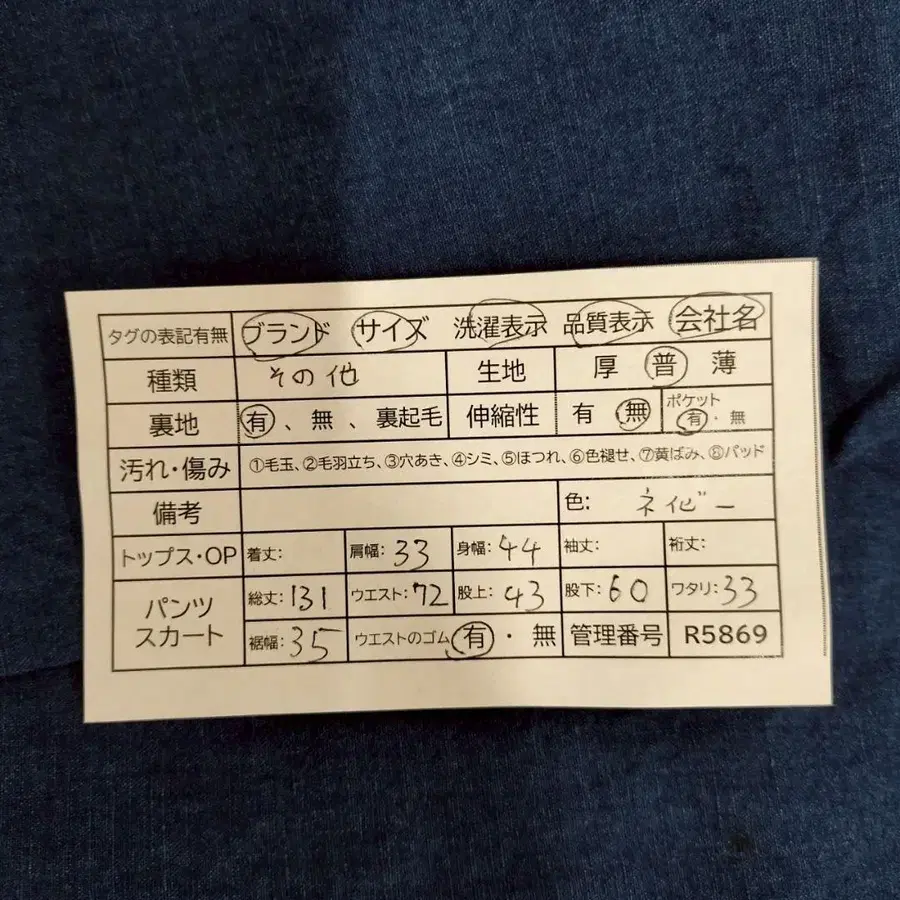 タグの表記有無 ブランド サイズ 洗濯表示 品質表示 会社名
種類 その他 生地 厚 普 薄
裏地 有、無、裏起毛 伸縮性 有 無 ポケット 有・無
汚れ・傷み ①毛玉、②毛羽立ち、③穴あき、④シミ、⑤ほつれ、⑥色褪せ、⑦黄ばみ、⑧パッド
備考 色: ネイビー
トップス・OP 着丈: 肩幅: 33 身幅: 44 袖丈: 裄丈:
パンツ スカート 総丈: 131 ウエスト: 72 股上: 43 股下: 60 ワタリ: 33
裾幅: 35 ウエストのゴム 有・無 管理番号 R5869